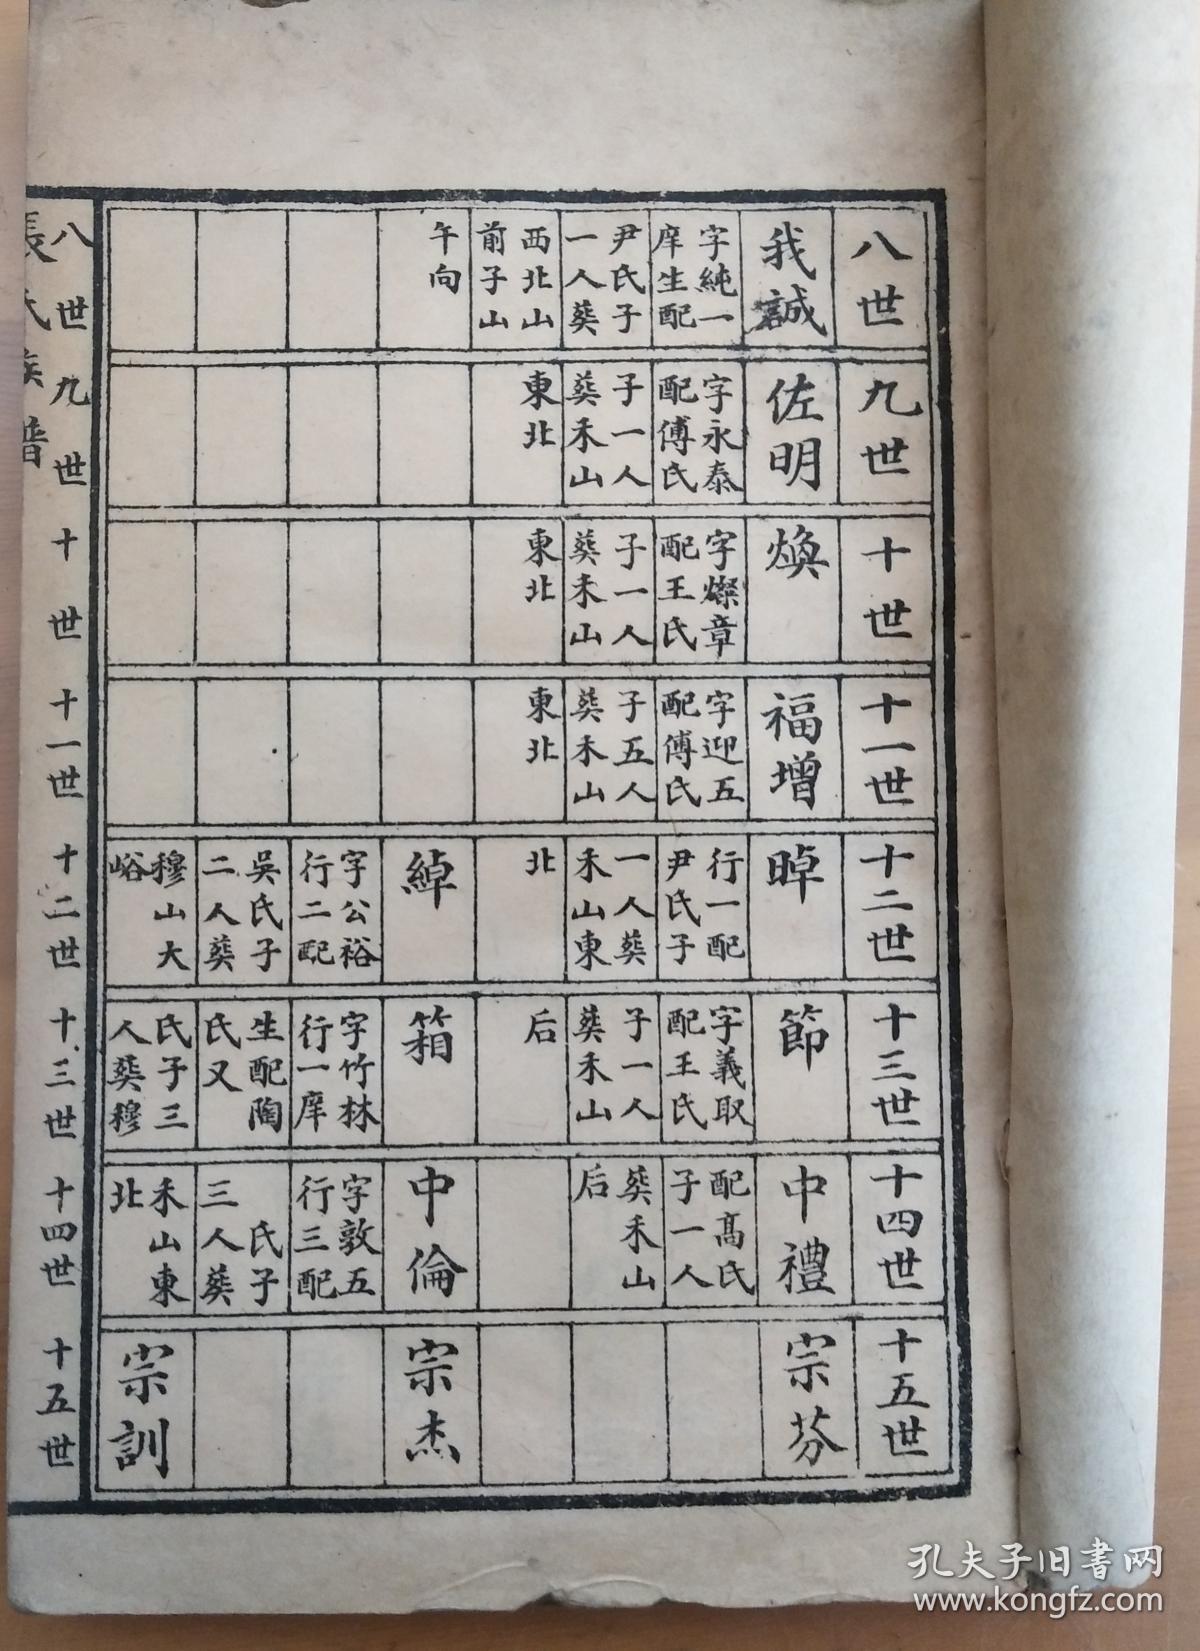 八世
我誠
字純一
庠生配
尹氏子
一人葵
西北山
前子山
午向
九世
佐明
字永泰
配傅氏
子一人
葵禾山
東北
十世
煥
字燦章
配王氏
子一人
葵禾山
東北
十一世
福增
字迎五
配傅氏
子五人
葵禾山
東北
十二世
晫
行一配
尹氏子
一人葵
禾山東
北
綽
字公裕
行二配
吳氏子
二人葵
穆山大
峪
十三世
節
字義取
配王氏
子一人
葵禾山
后
箱
字竹林
行一庠
生配陶
氏又
氏子三
人葵穆
十四世
中禮
配髙氏
子一人
葵禾山
后
中倫
字敦五
行三配
氏子
三人葵
禾山東
北
十五世
宗芬
宗杰
宗訓
張氏族譜
八世 九世 十世 十一世 十二世 十三世 十四世 十五世
孔夫子旧書网
www.kongfz.com